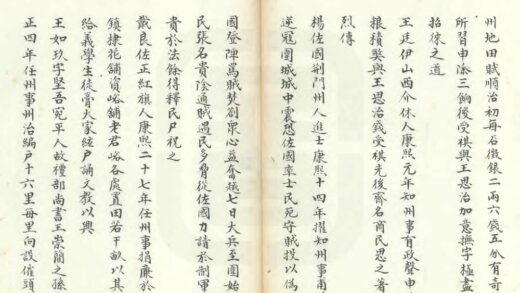 州地田賦順治初每石徵銀二兩六錢五分有奇
所習由添三餉後受祺與王思治加意撫字極盡
招徠之道
王廷伊山西介休人康熙元年知州事有政聲申
粮積獘與王思治錢受祺先後齊名商民思之著
烈傳
楊佐國荆門州人進士康熙十四年擢知州事甫
逆冦圍城城中震恐佐國率士民死守賊投以偽
國登陴罵賊焚劄衆心益奮越七日大兵至圍始
民張名貴陰通賊民多脅從佐國力請於制軍
貴於法餘得釋民尸祝之
戴良佐正紅旗人康熙二十七年任州事捐廉於
鎮棣花鋪資峪鋪老君峪各處置田若干畝以其
給義學生徒膏火家絃户誦文教以興
王如玖字堅吾宛平人故禮部尚書王崇簡之孫
正四年任州事州治編户十六里每里向設催頭